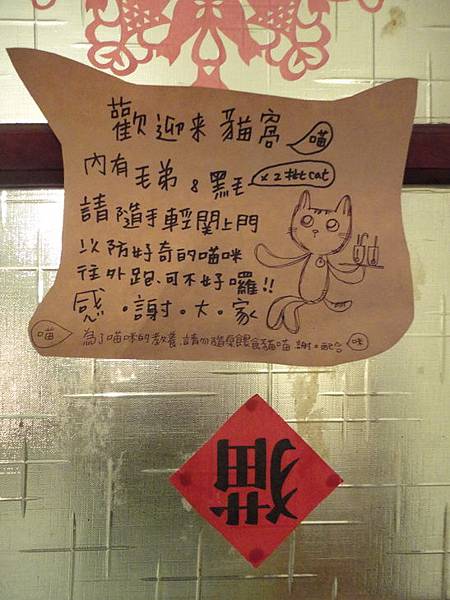 歡迎来貓窩 喵
內有毛弟 & 黑毛 x2 cat
請隨手輕関上門
以防好奇的喵咪
往外跑、可不好囉!!
感。謝。大。家
喵 為了喵咪的教養、請勿餵食貓喵 謝。配合 咪
猫